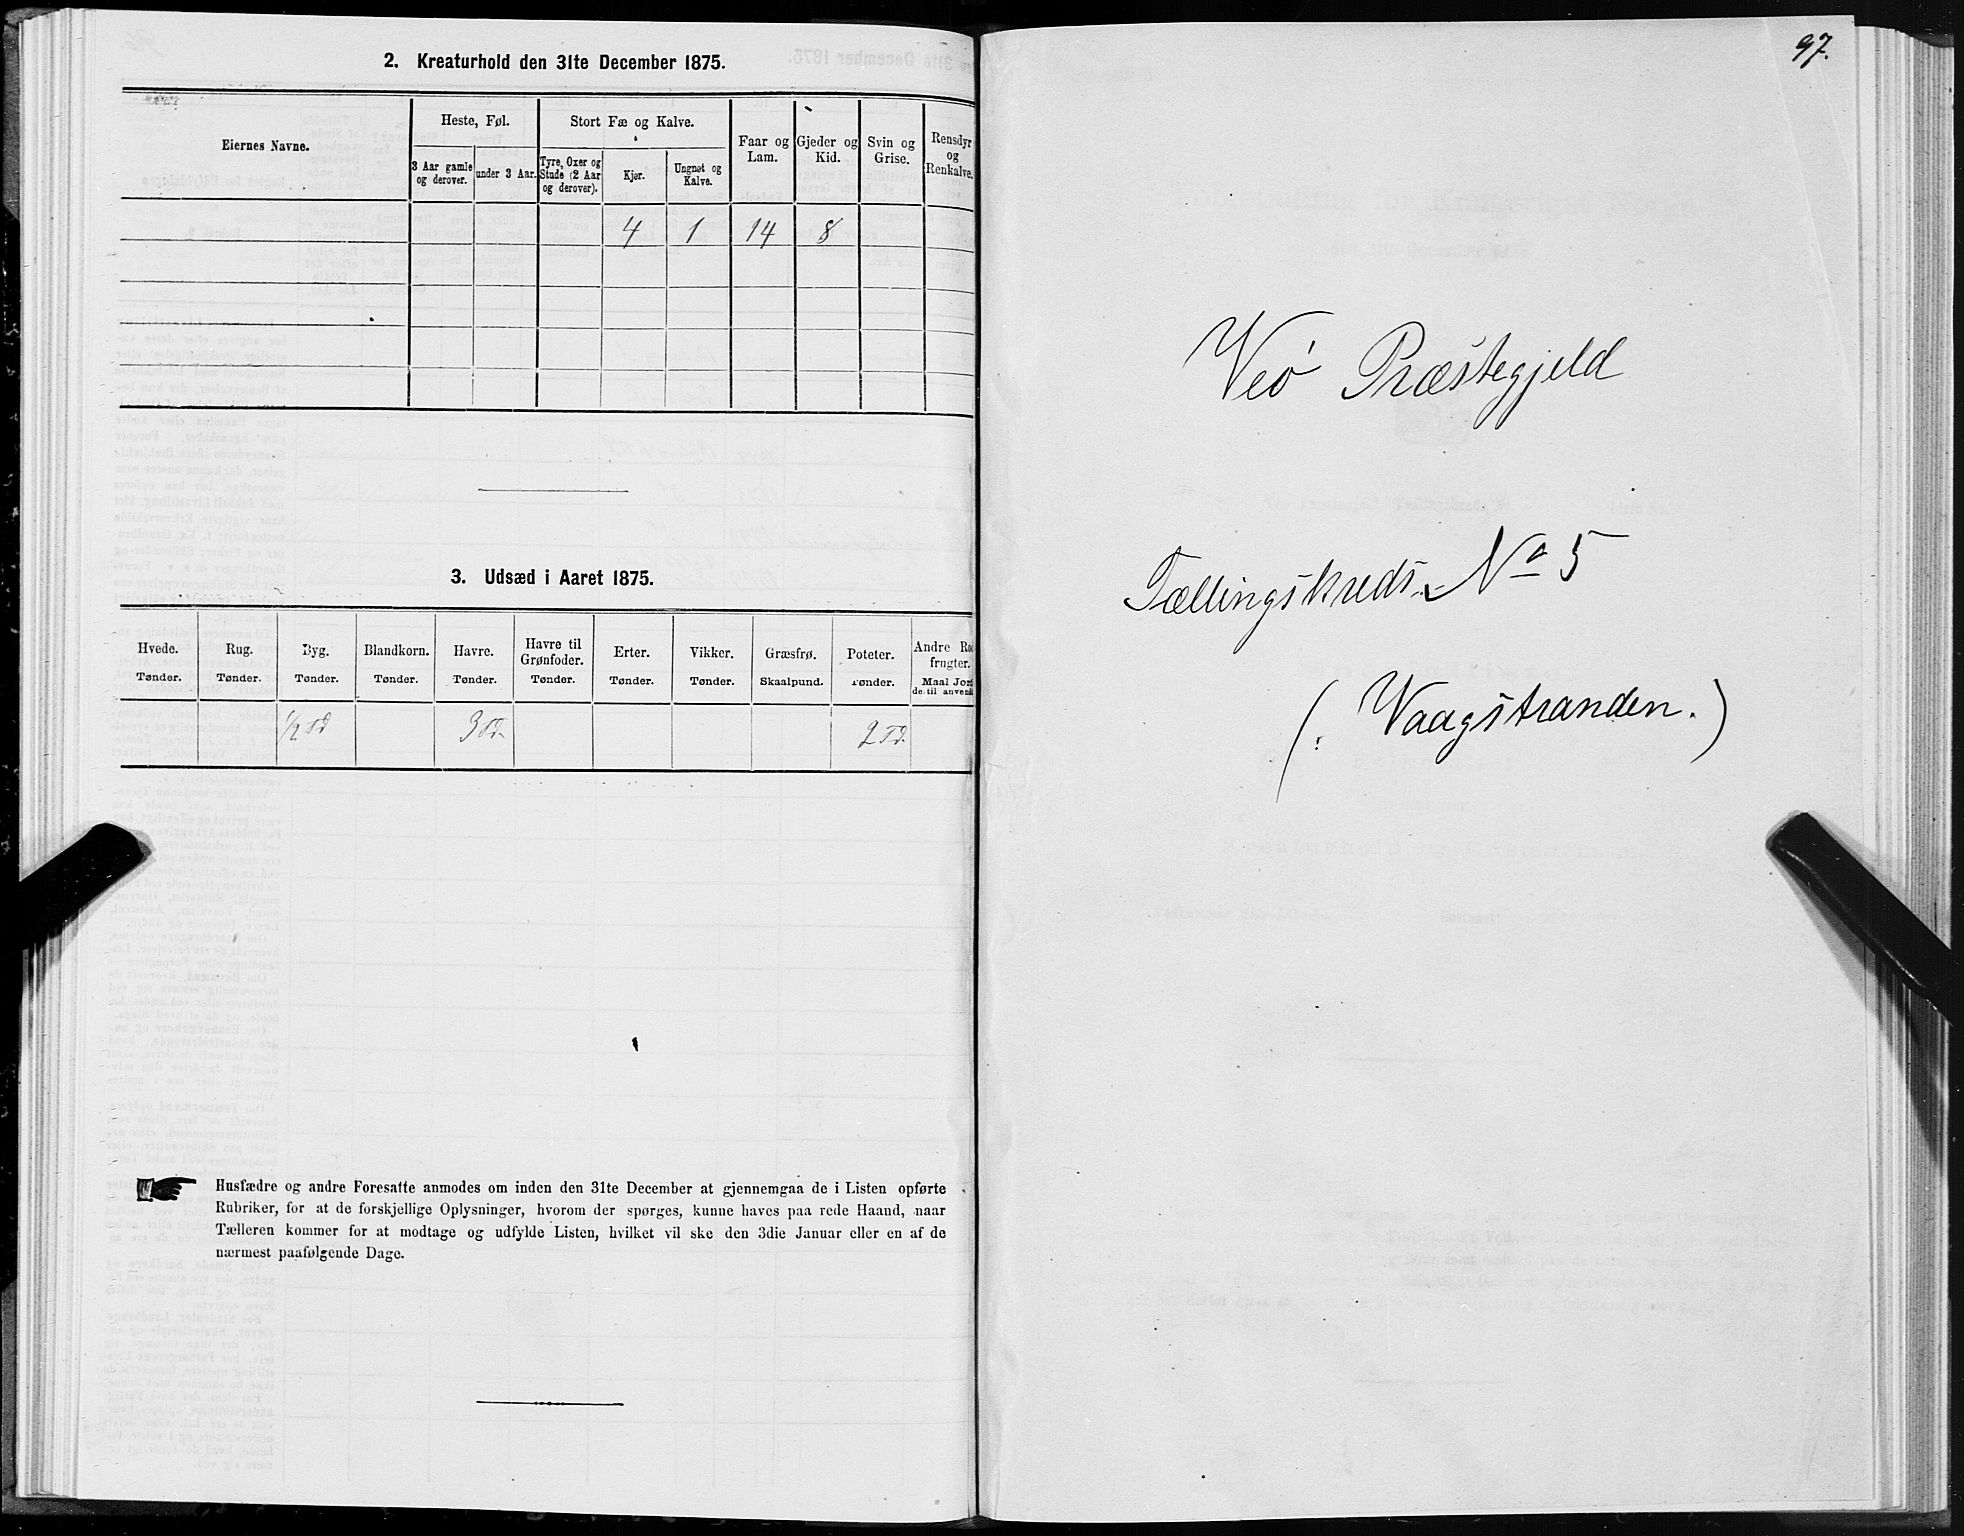 2. Kreaturhold den 31te December 1875.
Eiernes Navne.
Heste, Føl.
3 Aar gamle og derover.
under 3 Aar.
Stort Fæ og Kalve.
Tyre, Oxer og Stude (2 Aar og derover).
Kjør.
Ungnøt og Kalve.
Faar og Lam.
Gjeder og Kid.
Svin og Grise.
Rensdyr og Renkalve.
4 1 14 8
3. Udsæd i Aaret 1875.
Hvede. Rug. Byg. Blandkorn. Havre. Havre til Grønfoder. Erter. Vikker. Græsfrø. Poteter. Andre
frugter.
Tønder. Tønder. Tønder. Tønder. Tønder. Tønder. Tønder. Tønder. Skaalpund. Tønder. Maal
de til
1/2 Td 3 Td. 2 Td.
Husfædre og andre Foresatte anmodes om inden den 31te December at gjennemgaa de i Listen opførte
Rubriker, for at de forskjellige Oplysninger, hvorom der spørges, kunne haves paa rede Haand, naar
Tælleren kommer for at modtage og udfylde Listen, hvilket vil ske den 3die Januar eller en af de
nærmest paafølgende Dage.
97.
Veø Præstegjeld
Tællingskreds No 5
(: Vaagstranden.)